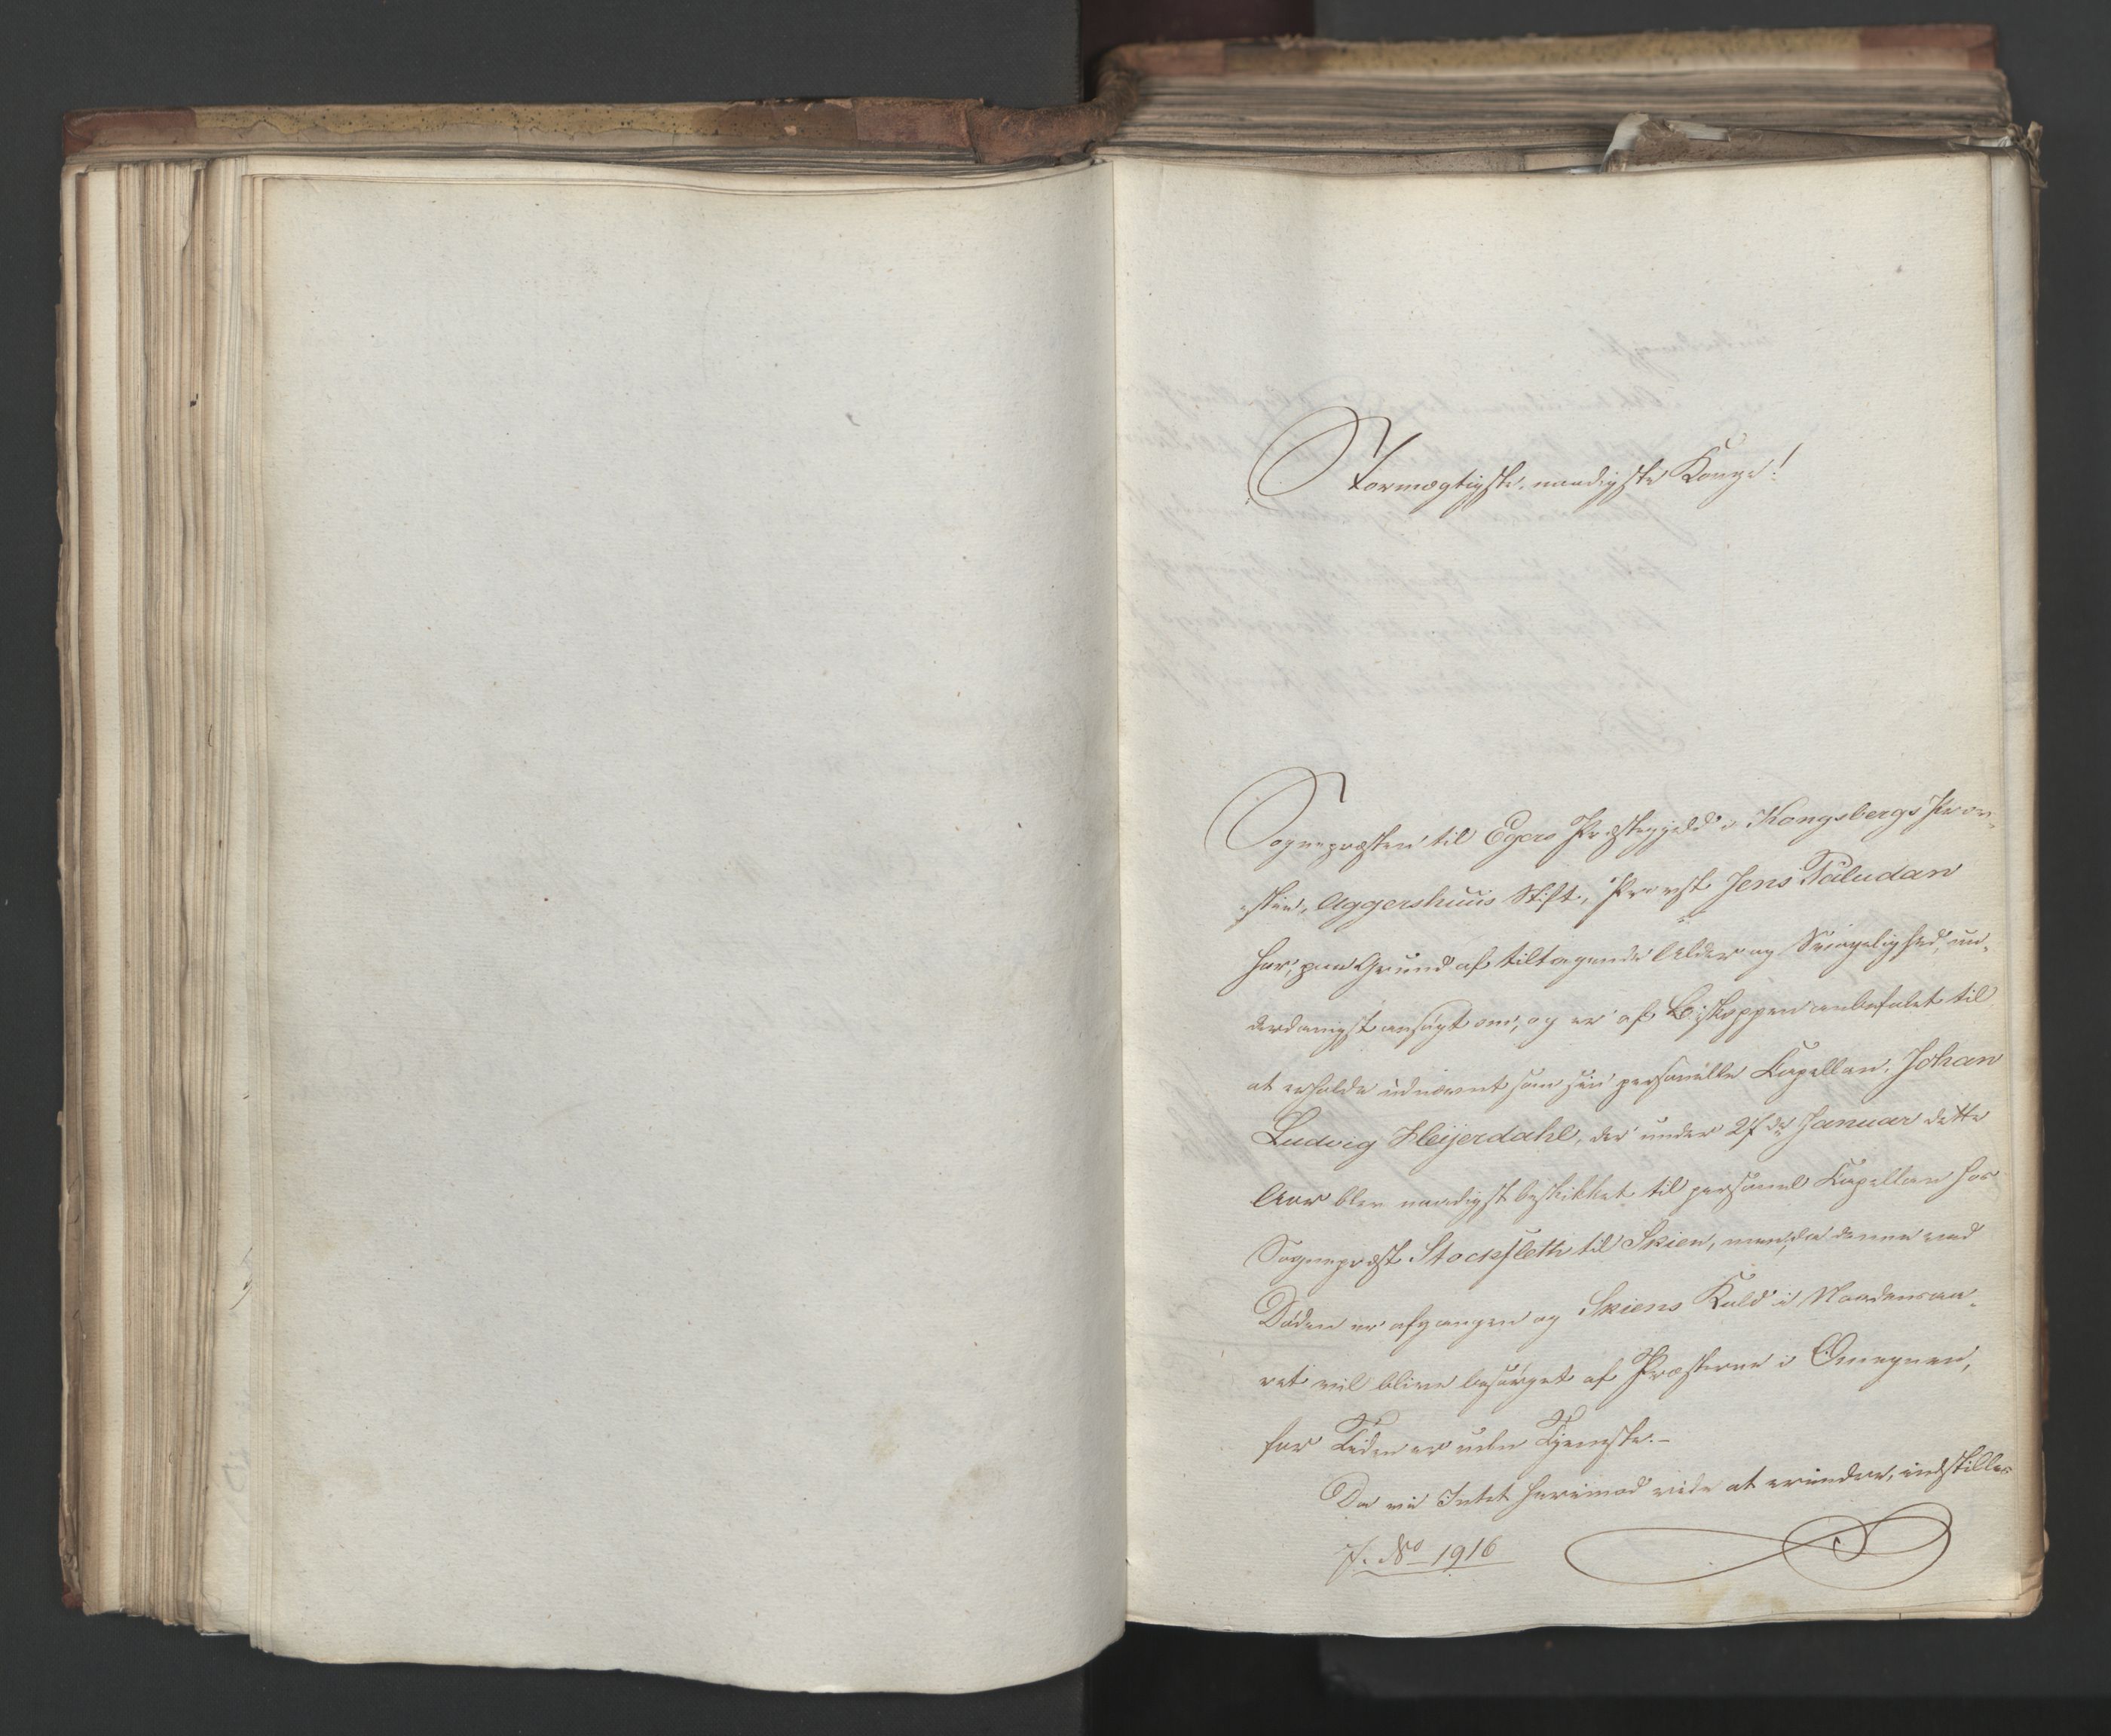 Stormægtigste, naadigste Konge!
Sognepræsten til Egers Præstegjeld i Kongsbergs Prov-
stie, Aggershuus Stift, Provst Jens Paludan
har, paa Grund af tiltagende Alder og Svagelighed, un-
derdanigst ansøgt om, og er af Biskoppen anbefalet til
at erholde udnævnt som sin personelle Kapellan, Johan
Ludvig Heijerdahl, der under 27de Januar dette
Aar blev naadigst beskikket til personel Kapellan hos
Sognepræst Stockfleth til Skien, men, da denne ved
Døden er afgangen og Skiens Kald i Naadensaa-
ret vil blive besørget af Præsterne i Omegnen,
for Tiden er uden Tjeneste.-
Da vi Intet herimod vide at erindre, indstilles
J. No 1916